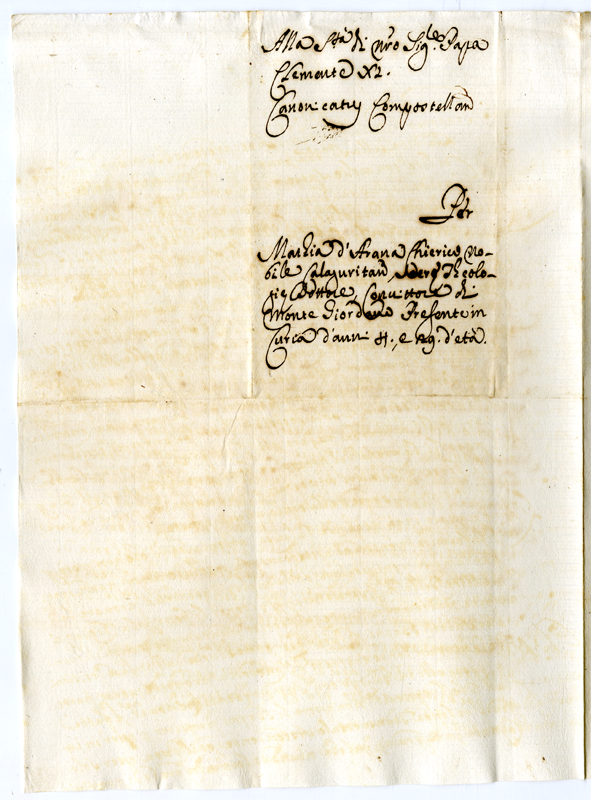 Alla Stà di Nro Sigre Papa
Clemente XI.
Canonicatus Compostellan
Per
Mathia d'Arana Chierico No-
bile Calaguritan, Theolo-
gie Dottore, Convittore di
Monte Giordano Presente in
Curia d'anni 4., e 29. d'età.